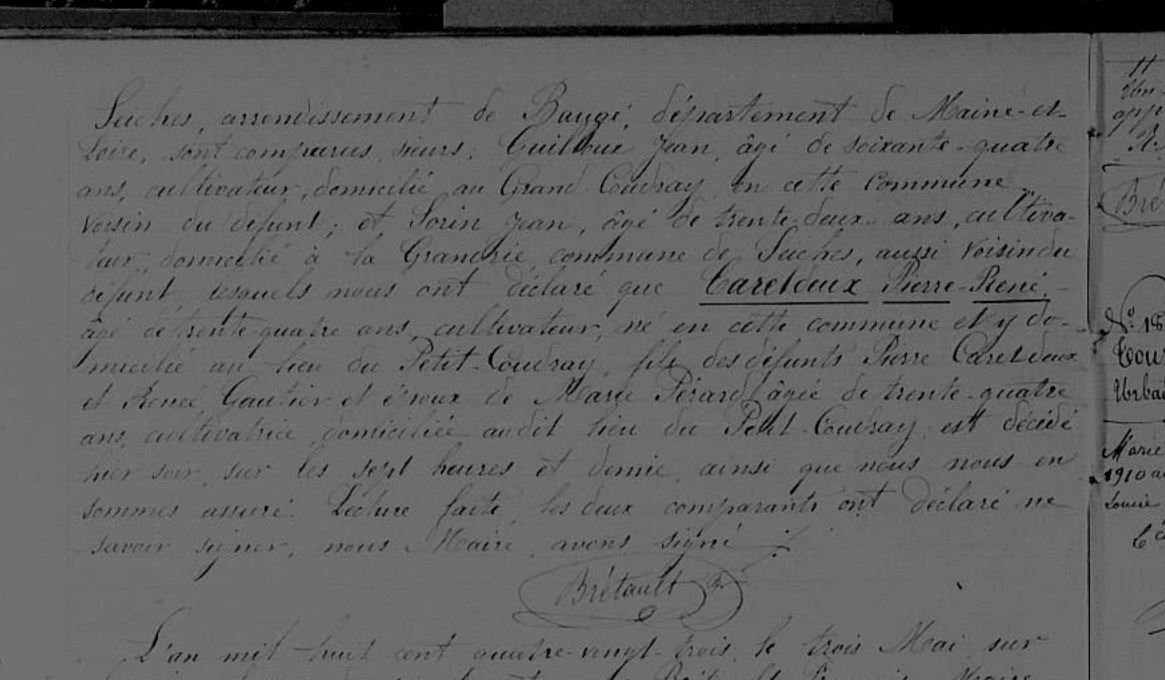 Seiches, arrondissement de Baugé, département de Maine-et-
Loire, sont comparus sieurs: Guilloux Jean, âgé de soixante-quatre
ans, cultivateur, domicilié au Grand-Coudray en cette commune
voisin du défunt; et Sorin Jean, âgé de trente-deux ans, cultiva-
teur, domicilié à la Grandrie commune de Seiches, aussi voisin du
défunt, lesquels nous ont déclaré que Careldeux Pierre-René,
âgé de trente-quatre ans, cultivateur, né en cette commune et y do-
micilié au lieu du Petit-Coudray, fils des défunts Pierre Careldeux
et Renée Gautier et époux de Marie Pérard âgée de trente-quatre
ans, cultivatrice domiciliée audit lieu du Petit-Coudray est décédé
hier soir, sur les sept heures et demie, ainsi que nous nous en
sommes assuré. Lecture faite, les deux comparants ont déclaré ne
savoir signer, nous Maire, avons signé
Brétault
L'an mil huit cent quatre-vingt-trois, le trois Mai sur
Maire
11
app
Bré
No 18
Urbai
Marie
1910
Louise